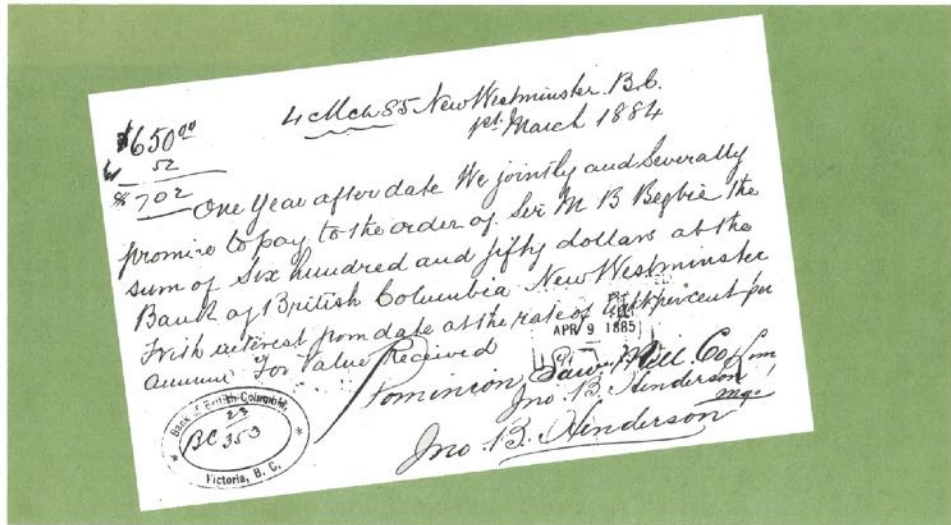 $650.00
52
$702
4 Mch 85 New Westminster B.C.
1st March 1884
One Year after date We jointly and Severally
promise to pay to the order of Sir M B Begbie the
sum of Six hundred and fifty dollars at the
Bank of British Columbia New Westminster
With interest from date at the rate of Eight percent per
annum For Value Received
APR 9 1885
Dominion Saw Mill Co Lim
Jno. B. Henderson
Mgr
Jno. B. Henderson
Bank of British Columbia,
23
BC 353
Victoria, B. C.